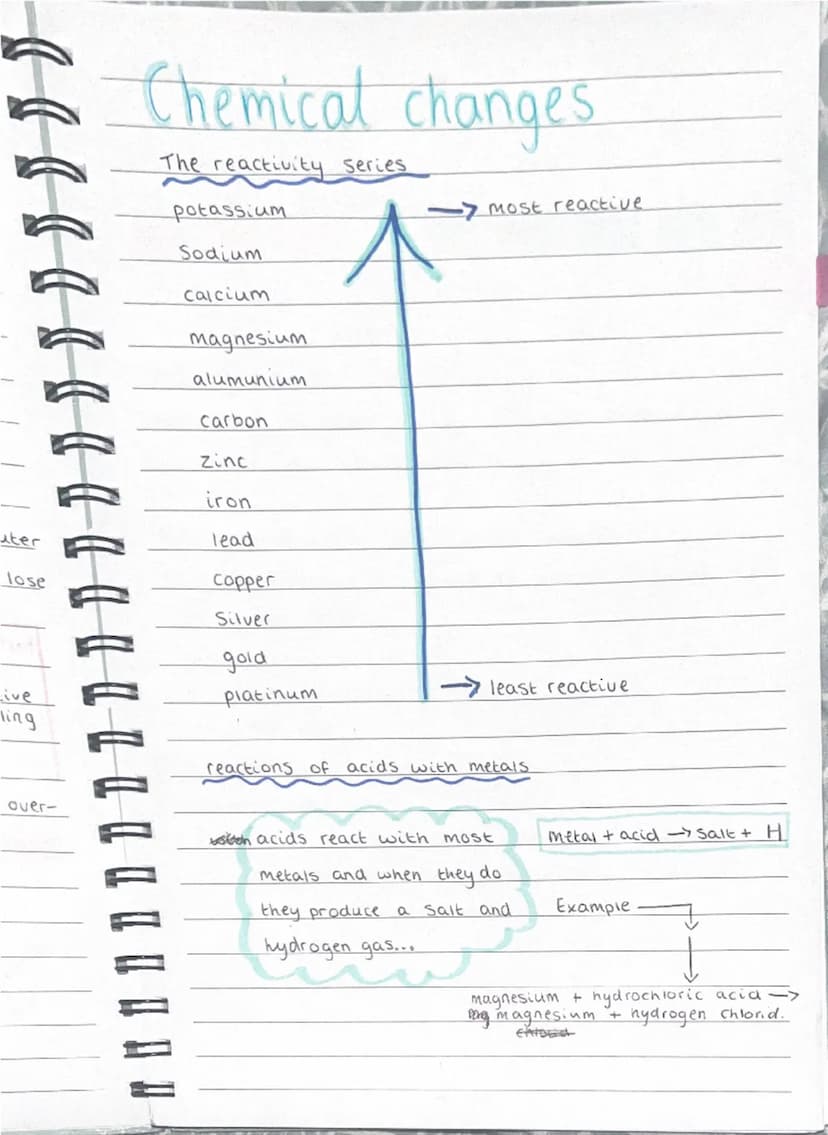 Chemical changes
The reactivity series
potassium → most reactive
Sodium
calcium
magnesium
alumunium
carbon
zinc
iron
lead
copper
Silver
gold
platinum → least reactive
reactions of acids with metals
acids react with most
metals and when they do
they produce a salt and
hydrogen gas...
metal + acid → salt + H
Example
magnesium + hydrochloric acid →
magnesium + hydrogen chlorid.
lose
over-